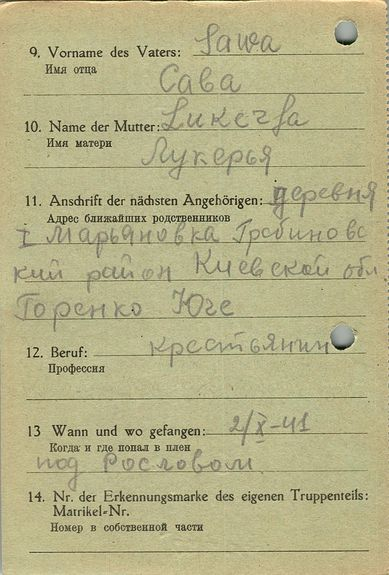 9. Vorname des Vaters: Sawa
Имя отца
Сава
10. Name der Mutter:
Имя матери
Лукерья
11. Anschrift der nächsten Angehörigen: деревня
Адрес ближайших родственников
I Марьяновка Гребиновс
кий район Киевской обл
Горенко
12. Beruf: крестьянин
Профессия
13 Wann und wo gefangen: 2/X-41
Когда и где попал в плен
под Рословом
14. Nr. der Erkennungsmarke des eigenen Truppenteils:
Matrikel-Nr.
Номер в собственной части